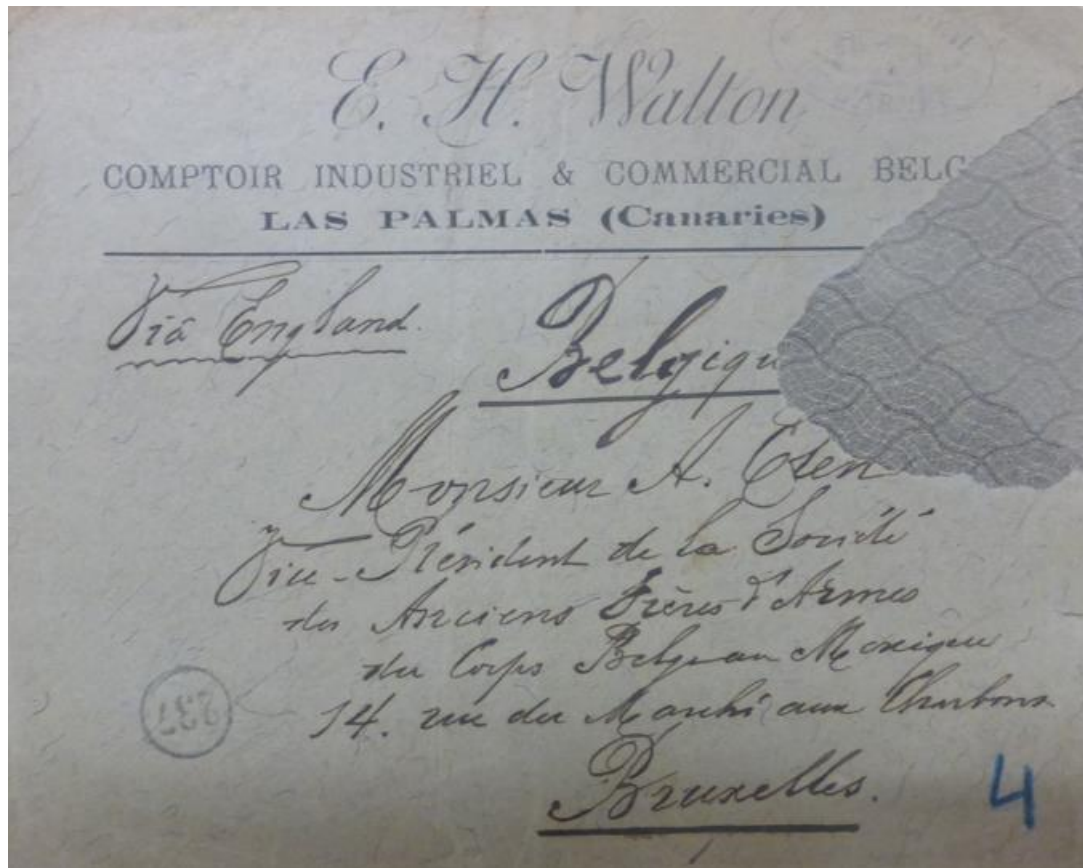 E. H. Walton
COMPTOIR INDUSTRIEL & COMMERCIAL BELG
LAS PALMAS (Canaries)
Viâ England.
Belgiqu
Monsieur A. Eten
Vice-Président de la Société
des Anciens Frères d'Armes
du Corps Belge au Mexique
14. rue du Marché aux Charbons
Bruxelles.
237
4